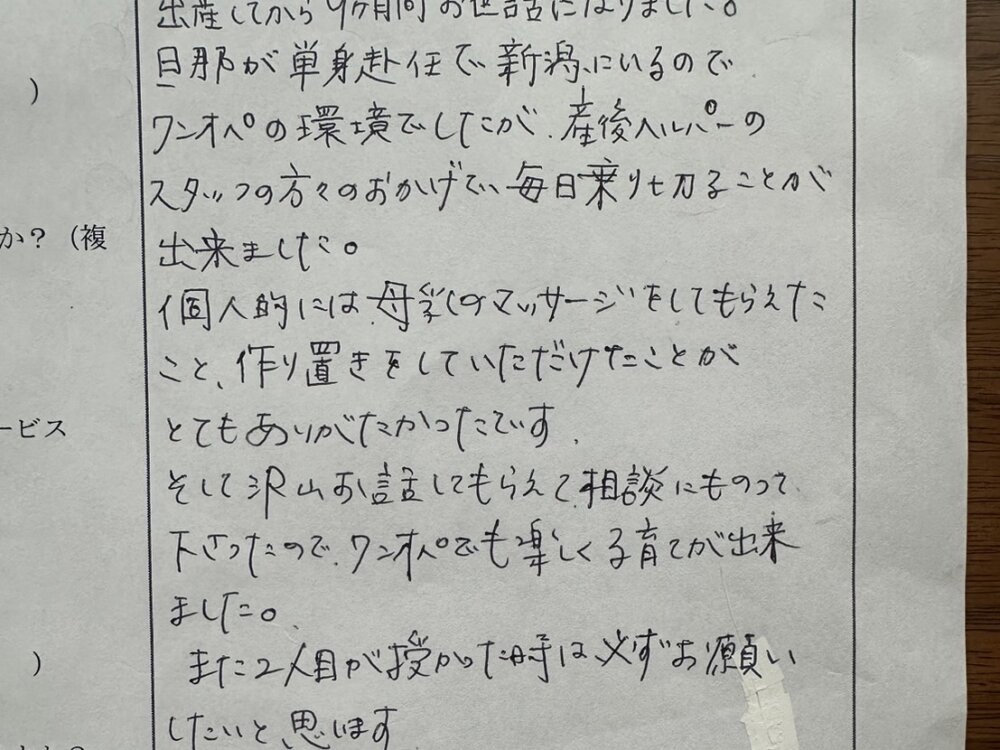 出産してから9ヶ月間お世話になりました。
)
旦那が単身赴任で新潟にいるので
ワンオペの環境でしたが、産後ヘルパーの
スタッフの方々のおかげで、毎日乗り切ることが
か？（複
出来ました。
個人的には母乳のマッサージをしてもらえた
こと、作り置きをしていただけたことが
ービス
とてもありがたかったです。
そして沢山お話してもらえて、相談にものって
下さったので、ワンオペでも楽しく子育てが出来
ました。
)
また2人目が授かった時は、必ずお願い
したいと思います